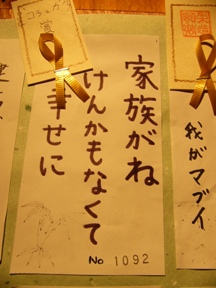 家族がね
けんかもなくて
幸せに
No 1092
我がマブイ